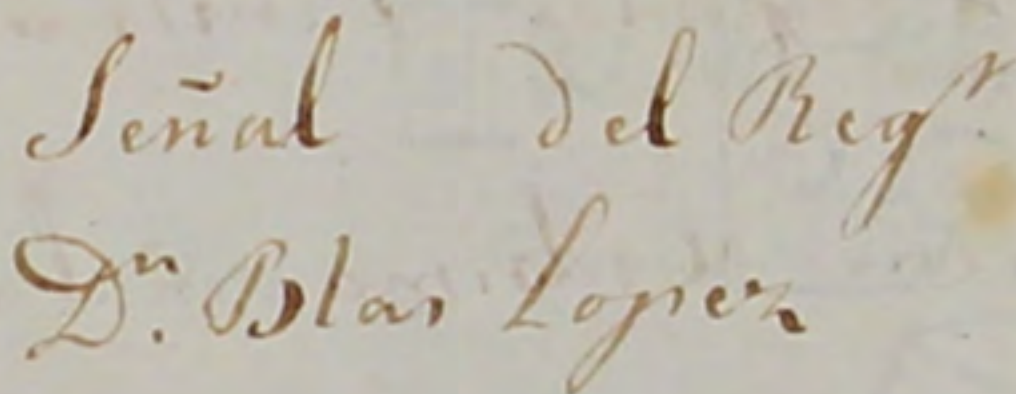 Señal del Regr
Dn. Blas Lopez